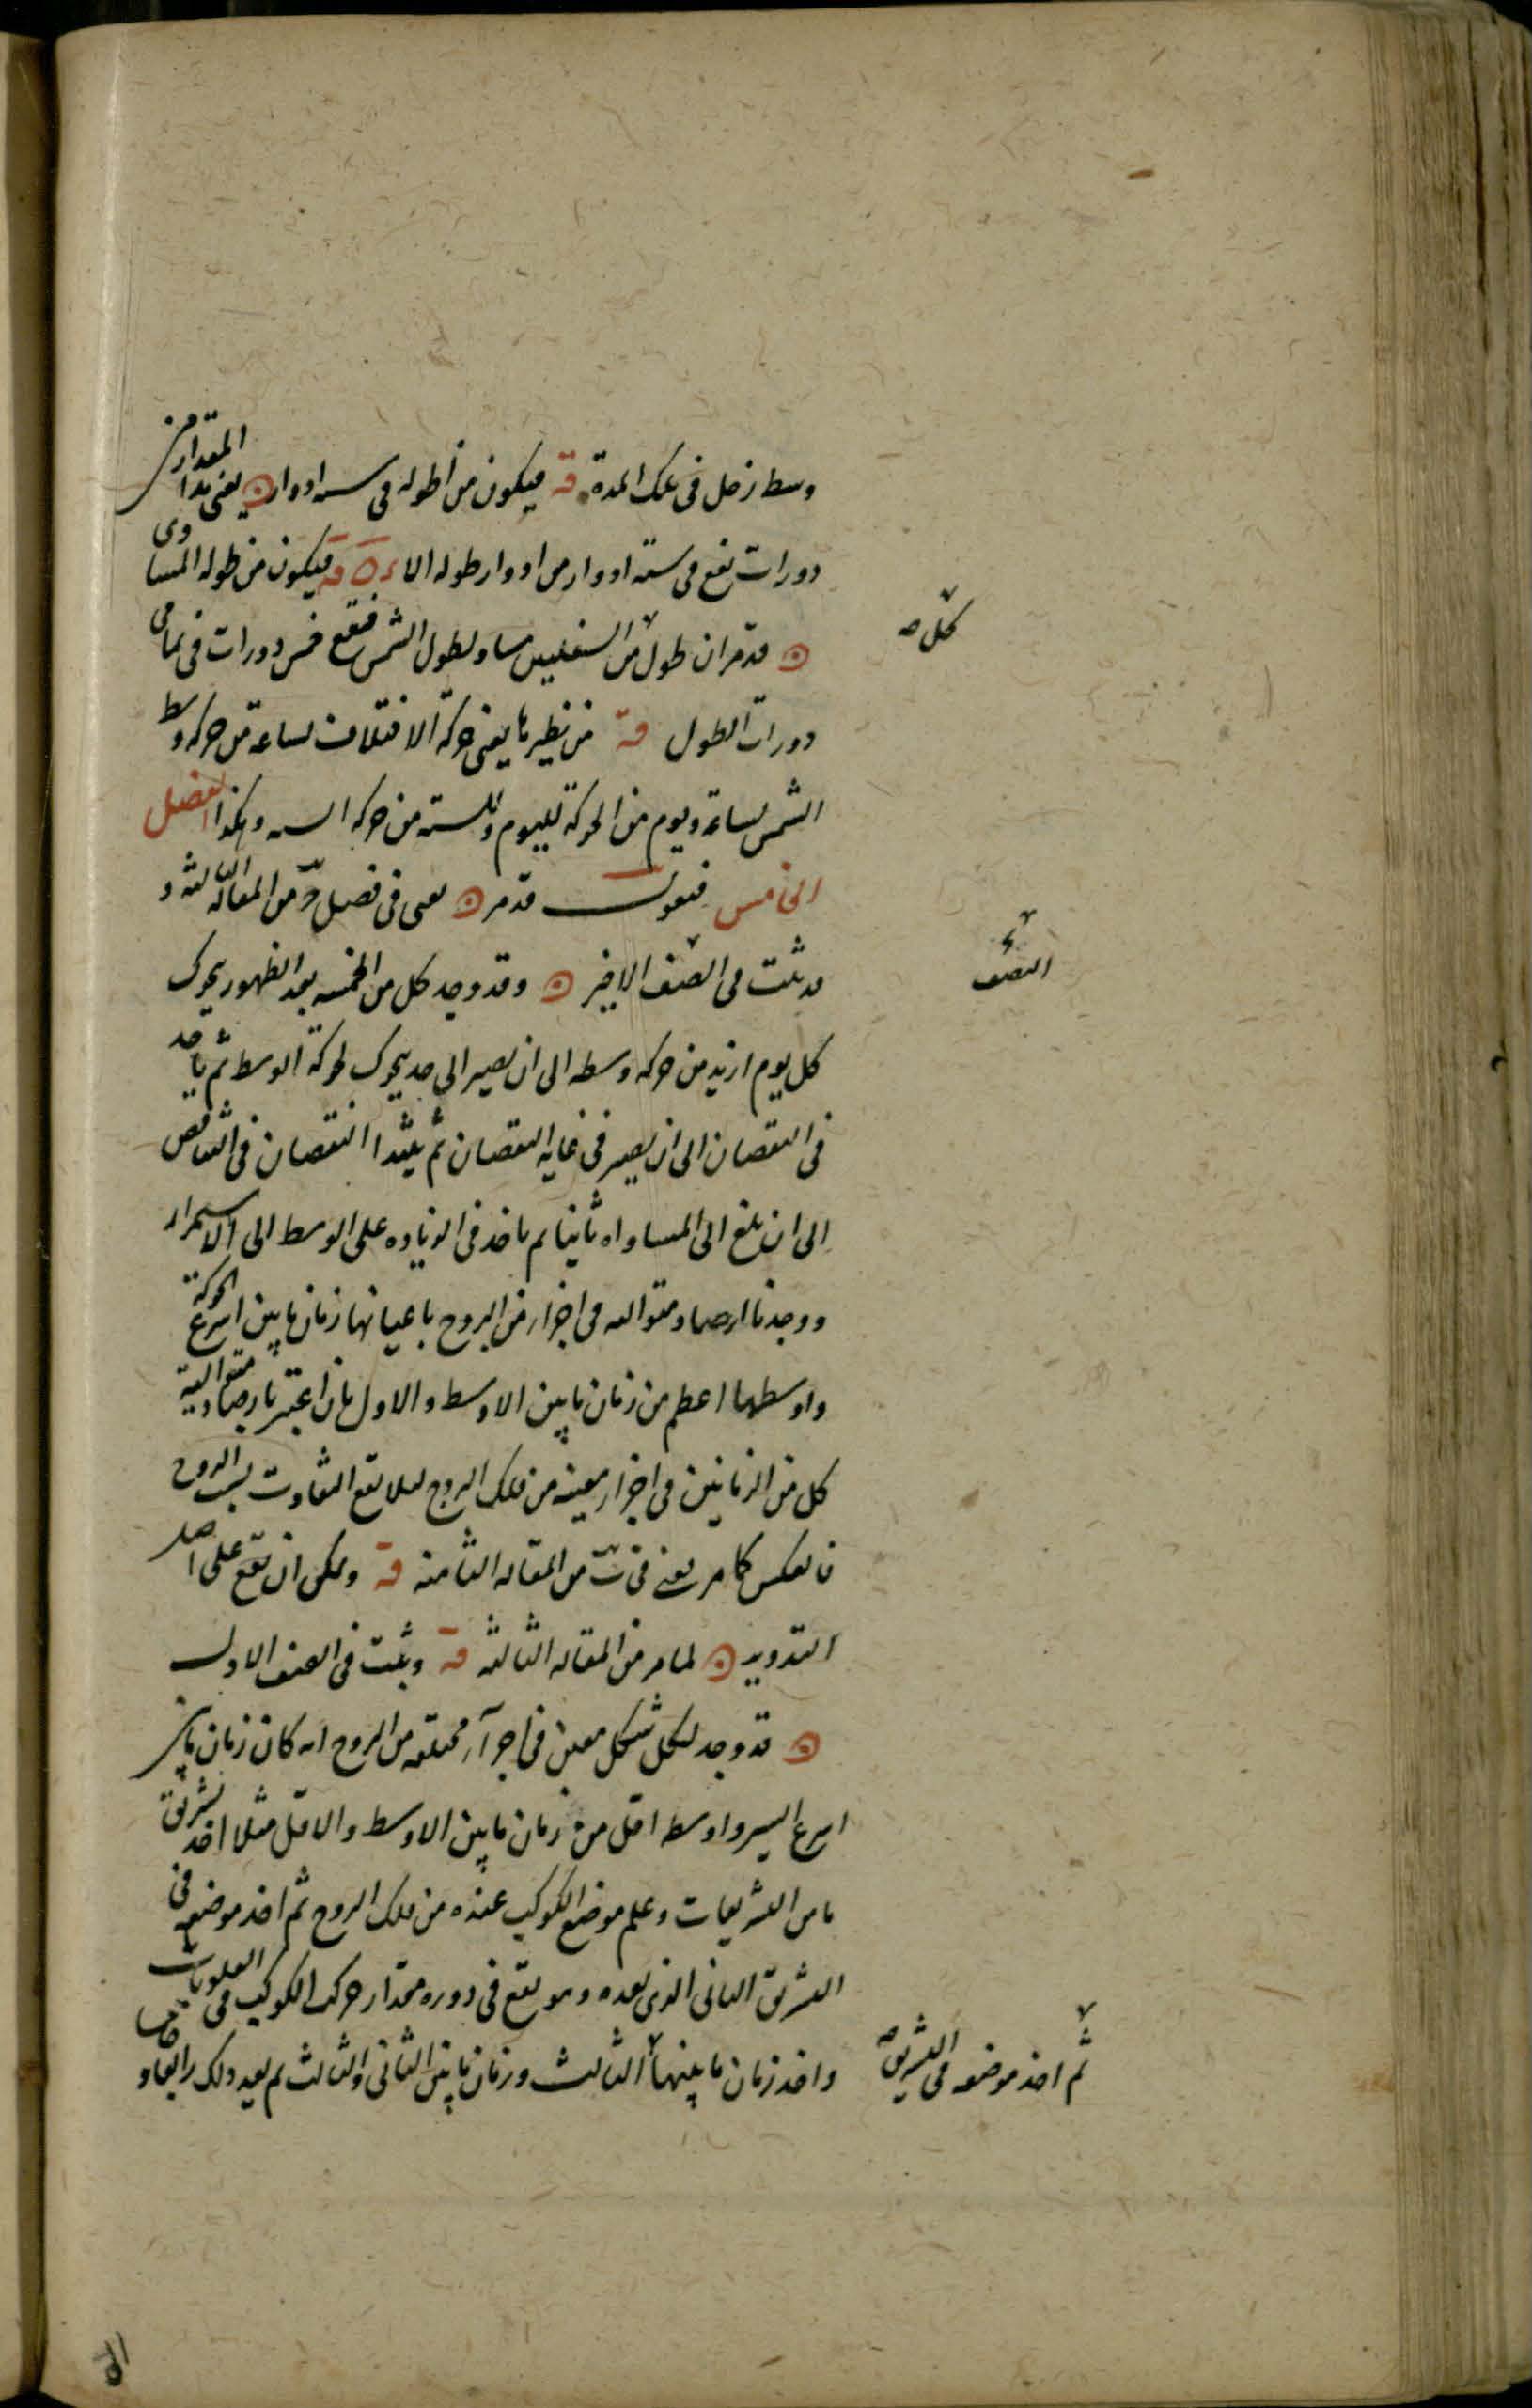 وسط زحل فى تلك المدة قه فيكون من اطوله فى ستة ادوار ه يعنى هذا المقدار من
دورات تقع فى ستة ادوار من ادوار طوله الا ه قه فيكون من طوله المساوى
ه قد مر ان طول من السفليين مساو لطول الشمس فتقع خمس دورات فى ثمانى
كل صح
دورات الطول قه من نظيرها يعنى حركة الاختلاف لساعة من حركه وسط
الشمس لساعة وليوم من الحركة لليوم وللسنة من حركه السنه وهكذا الفصل
الخامس فنقول قد مر ه يعنى فى فصل و من المقالة الثالثة و
قد ثبت فى الصنف الاخير ه وقد وجد كل من الخمسه بعد الظهور يتحرك
النصف
كل يوم ازيد من حركه وسطه الى ان يصير الى حد يتحرك لحركة الوسط ثم ياخذ
فى النقصان الى ان يصير فى غايه النقصان ثم يبتدا النقصان فى التناقص
الى ان يبلغ الى المساواه ثانيا ثم ياخذ فى الزياده على الوسط الى الاستمرار
ووجدنا ارصاد متواليه فى اجزاء من البروج باعيانها زمان ما بين اسرع الحركة
واوسطها اعظم من زمان ما بين الاوسط والاول بان اعتبر بارصاد متوالية
كل من الزمانين فى اجزاء معينه من فلك البروج لئلا يقع التفاوت بسبب البروج
فانعكس كما مر يعنى فى ت من المقاله الثامنه قه ويمكن ان يقع على اصل
التدوير ه لما مر من المقاله الثالثه قه وثبت فى الصنف الاول
ه قد وجد لكل شكل معين فى اجزاء مختلفه من البروج انه كان زمان ما بين
اسرع السير واوسطه اقل من زمان ما بين الاوسط والاقل مثلا اخذ تشريق
ما من التشريقات وعلم موضع الكوكب عنده من فلك البروج ثم اخذ موضعه فى
التشريق الثانى الذى بعده وهو يقع فى دوره مقدار حركه الكوكب فى العلويات
واخذ زمان ما بينهما الثالث وزمان ما بين الثانى والثالث ثم بعد ذلك رابعا وخامسا
ثم اخذ موضعه فى التشريق صح